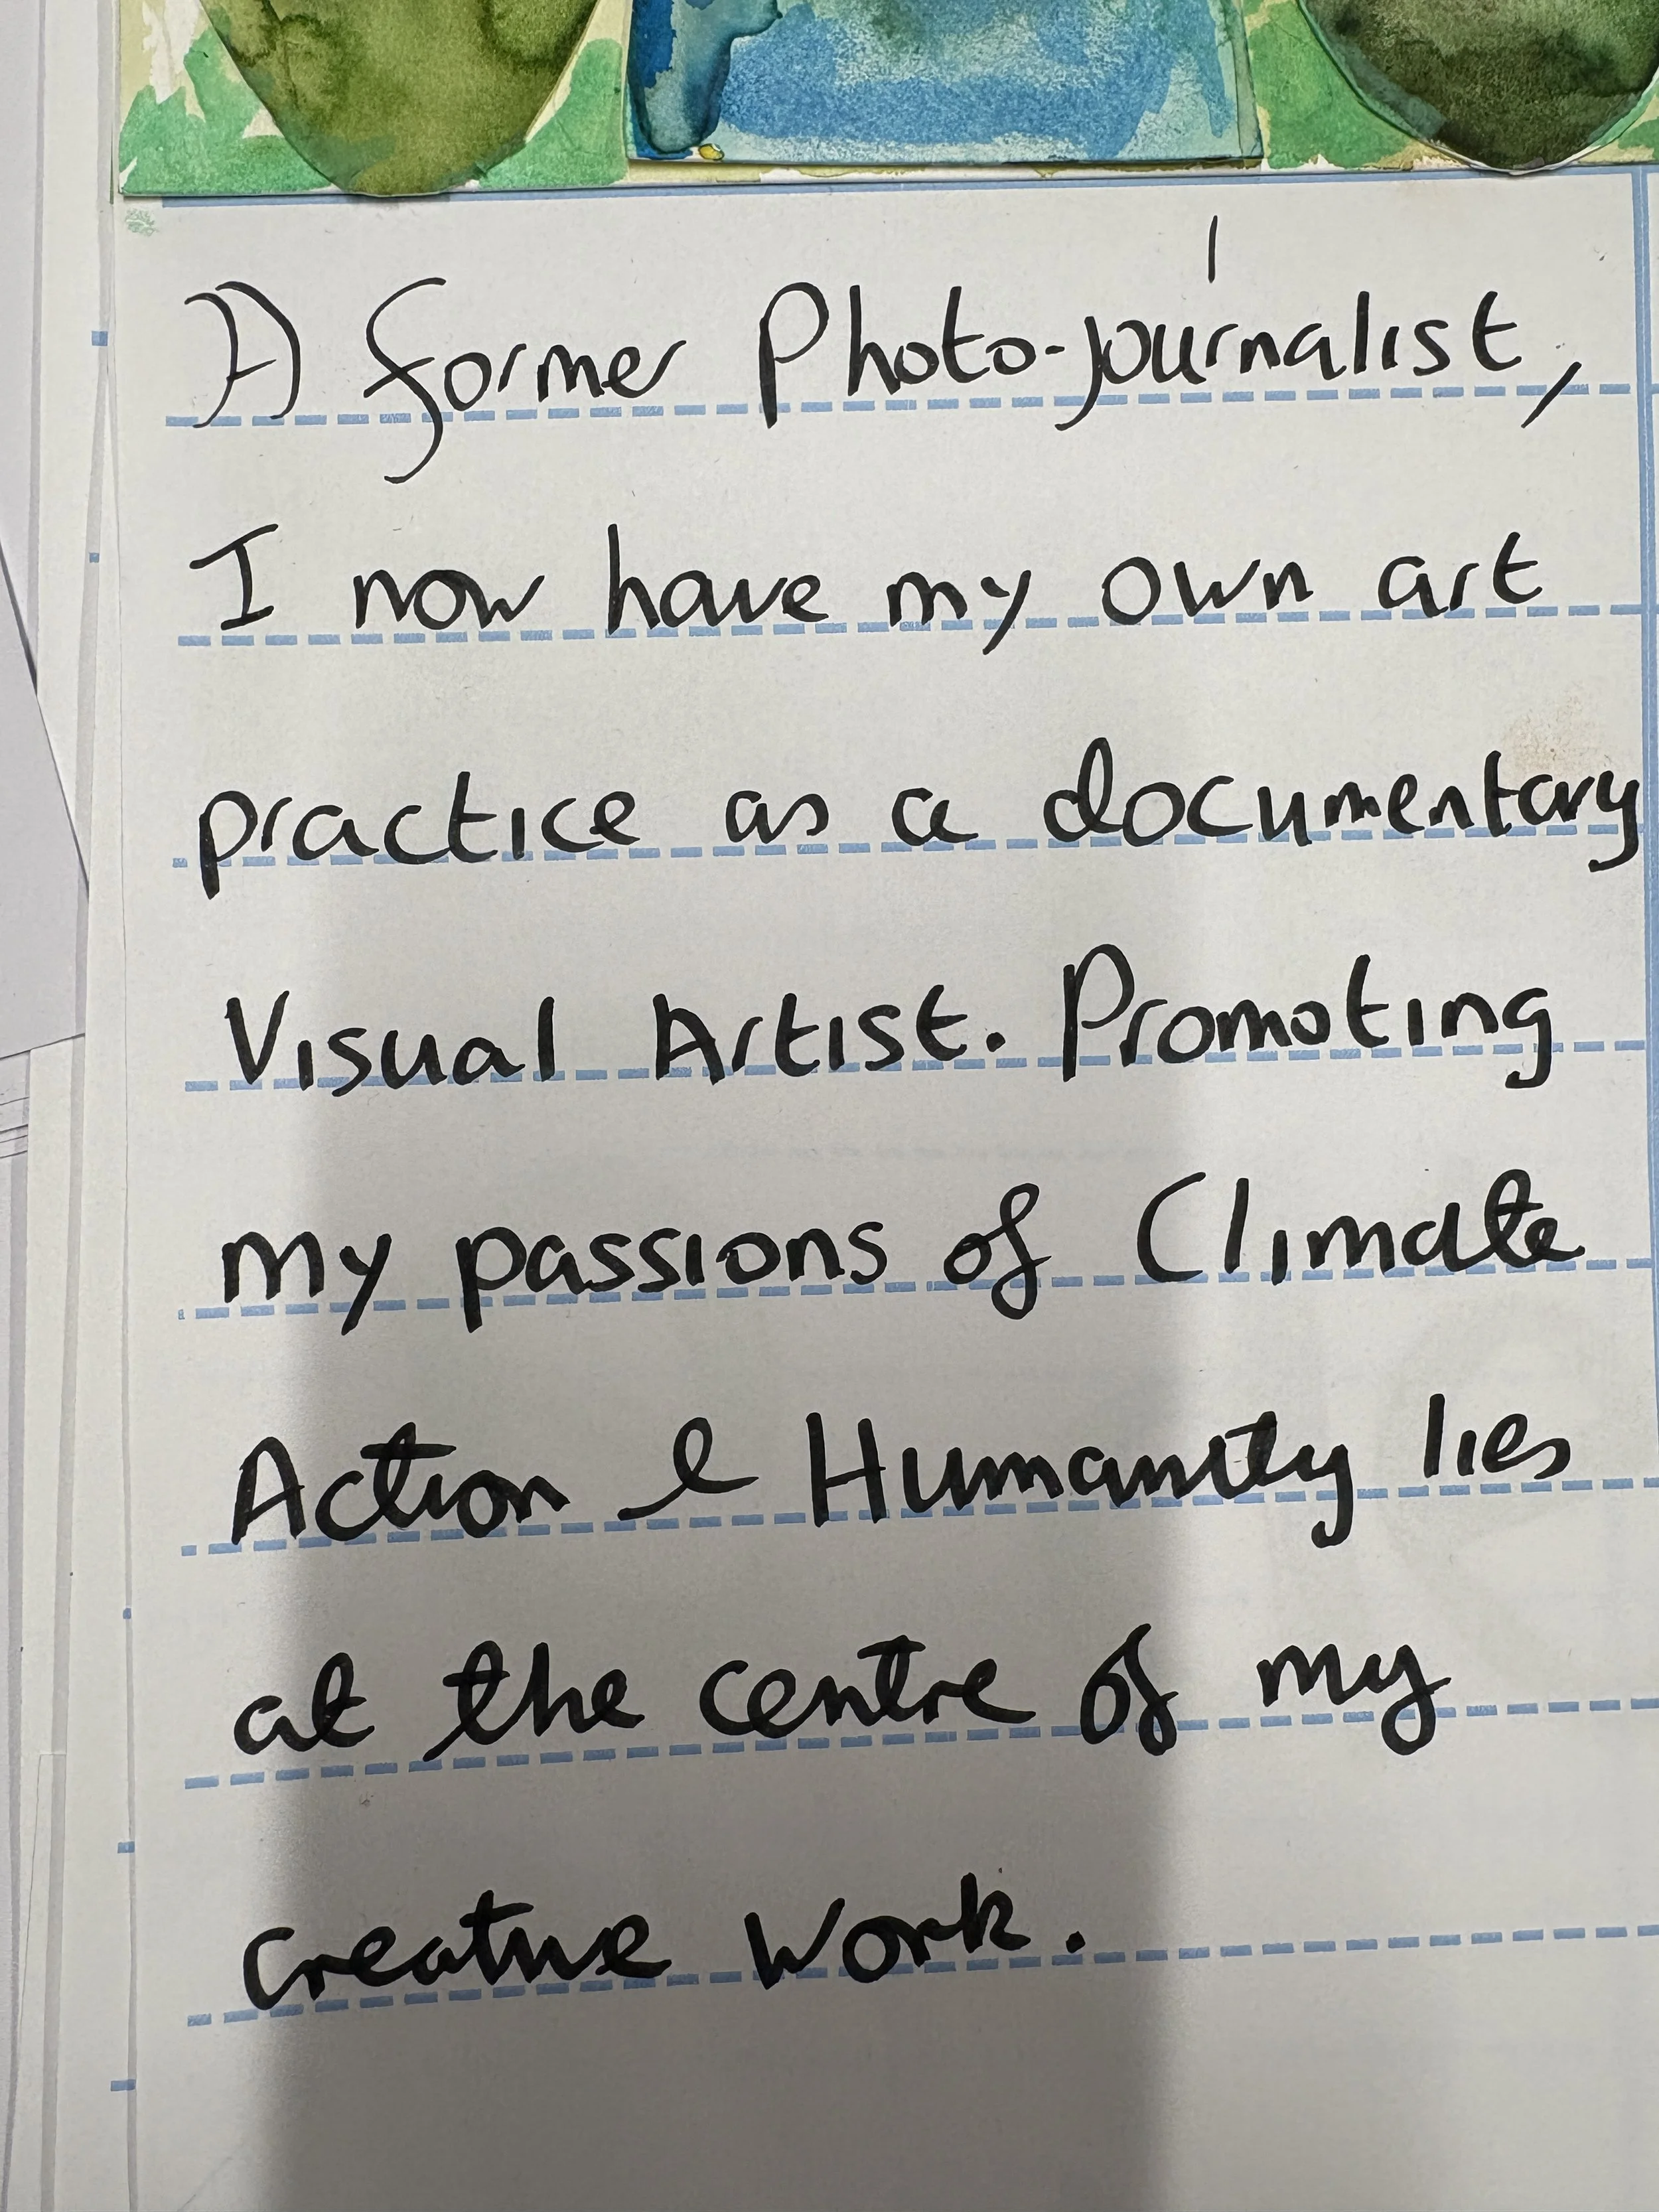 A former Photo-journalist,
I now have my own art
practice as a documentary
Visual Artist. Promoting
my passions of Climate
Action & Humanity lies
at the centre of my
creative work.